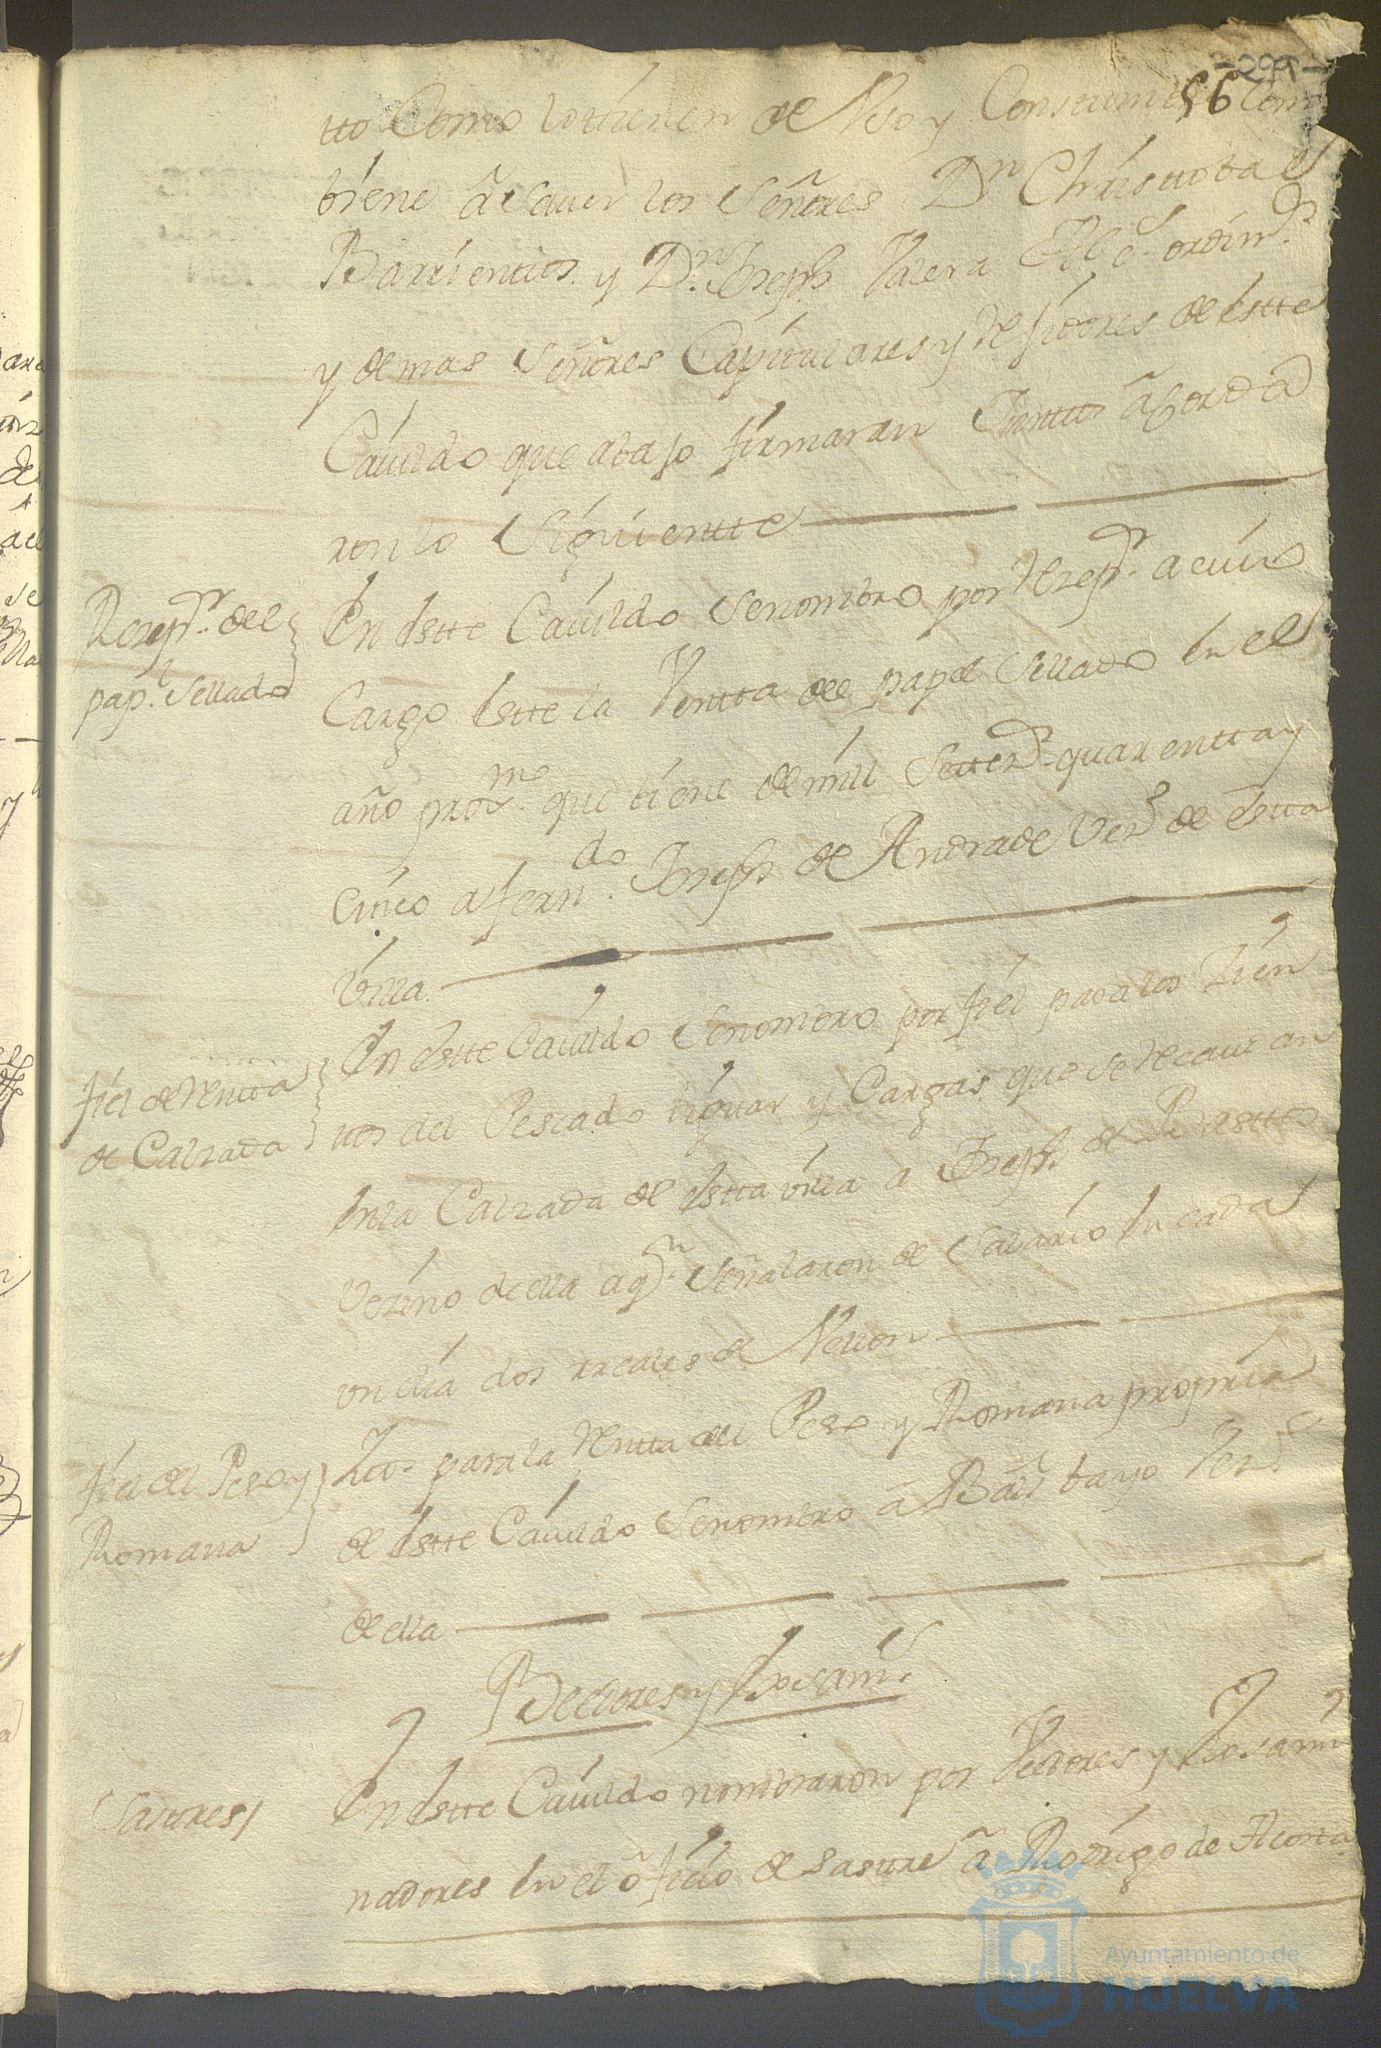 -299-
56
tto Como lo tienen de Vso y Constumbre Com
biene â sauer los Señores Dn Christobal
Barrientos y Dn Joseph Valera Alces. ordins
y demas Señores Capitulares y Rejidores de estte
Cauildo que abajo firmaran Juntos âcorda
ron lo Siguientte
Rezepr. del papl. Sellado
En estte Cauildo Se nombro por Rezepr. a cuio
Cargo estte la Ventta del papel Sellado en el
año proxmo. que biene de mill Settezs. quarentta y
cinco a Ferndo. Joseph de Andrade Vezo de estta
villa
fiel de Rentta de Calzada
En estte Cauildo Se nombro por fiel para los Vien
ttos del Pescado y Cargas que se Recaudan
en la Calzada de estta villa a Joseph de
Vezino de ella a qn Señalaron de Salario en cada
vn dia dos rreales de Vellon
fiel del Peso y Romana
Ittn. para la Rentta del Peso y Romana propria
de estte Cauildo Se nombro a bayo Vezo
de ella
Beedores y Exsams.
Sastres
En estte Cauildo nombraron por Veedores y Exsami
nadores en el ôficio de Sastre â Rodrigo de Acosta
Ayuntamiento de
HUELVA